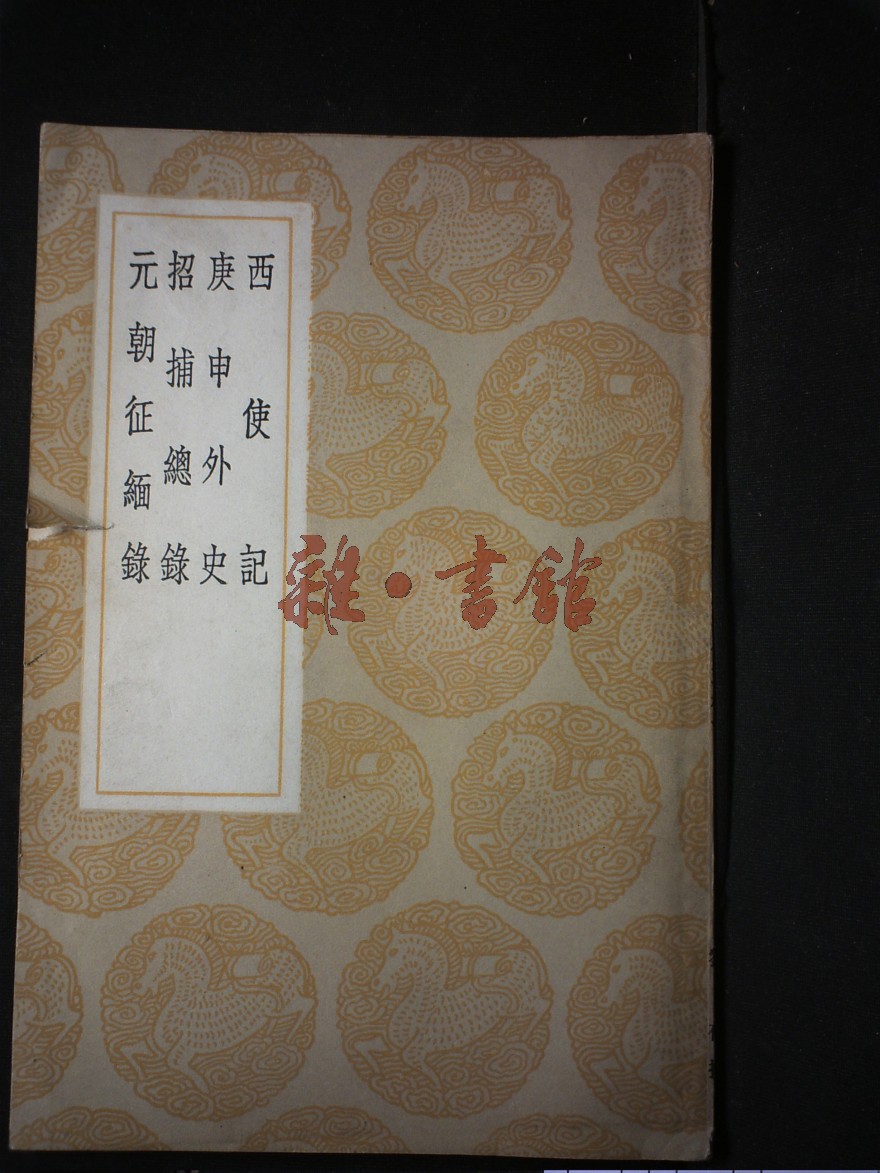 西使記
庚申外史
招捕總錄
元朝征緬錄
雜·書館